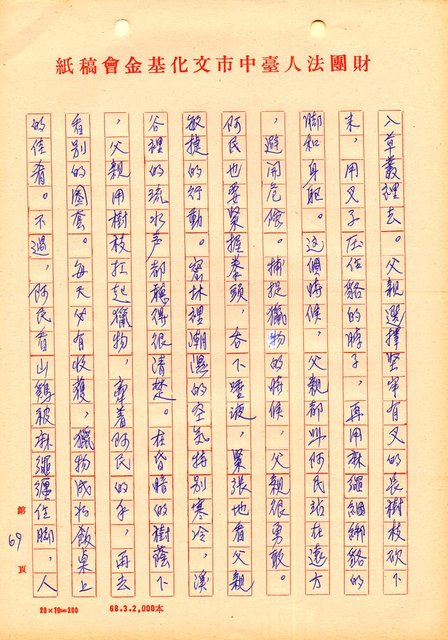 紙稿會金基化文市中臺人法團財
入草叢裡去。父親選擇堅牢有叉的長樹枝砍下
來,用叉子压住貉的脖子,再用麻繩綑綁貉的
脚和身軀。这個時候,父親都叫阿民站在遠方
,避開危險。捕捉獵物的時候,父親很勇敢。
阿民也要緊握拳頭,吞下唾液,緊張地看父親
敏捷的行動。密林裡潮濕的空氣特別寒冷,溪
谷裡的流水声都聽得很清楚。在昏暗的樹蔭下
,父親用樹枝扛起獵物,牽着阿民的手,再去
看別的圈套。每天父有收獲,獵物成为飯桌上
的佳肴。不過,阿民看山鷄被麻繩纏住脚,人
第 69 頁
20×10=200
68.3.2,000本